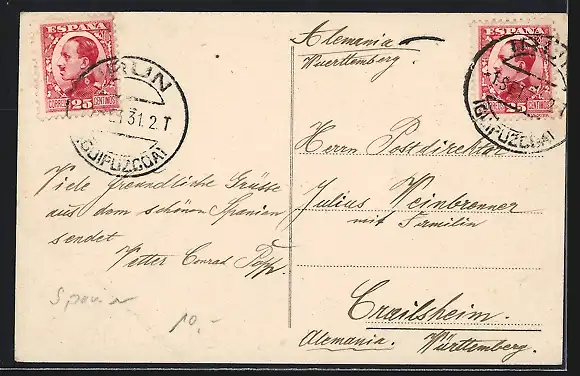 ESPAÑA
CORREOS 25 CENTIMOS
IRUN
31.2T
(GUIPUZCOA)
Viele freundliche Grüsse
aus dem schönen Spanien
sendet
Vetter Conrad Popp.
Spanien
10,-
ESPAÑA
25 CENTIMOS
IRUN
1 SET
2T
(GUIPUZCOA)
Alemania
Wuerttemberg.
Herrn Postdirektor
Julius Weinbrenner
mit Familie
Crailsheim.
Alemania. Württemberg.